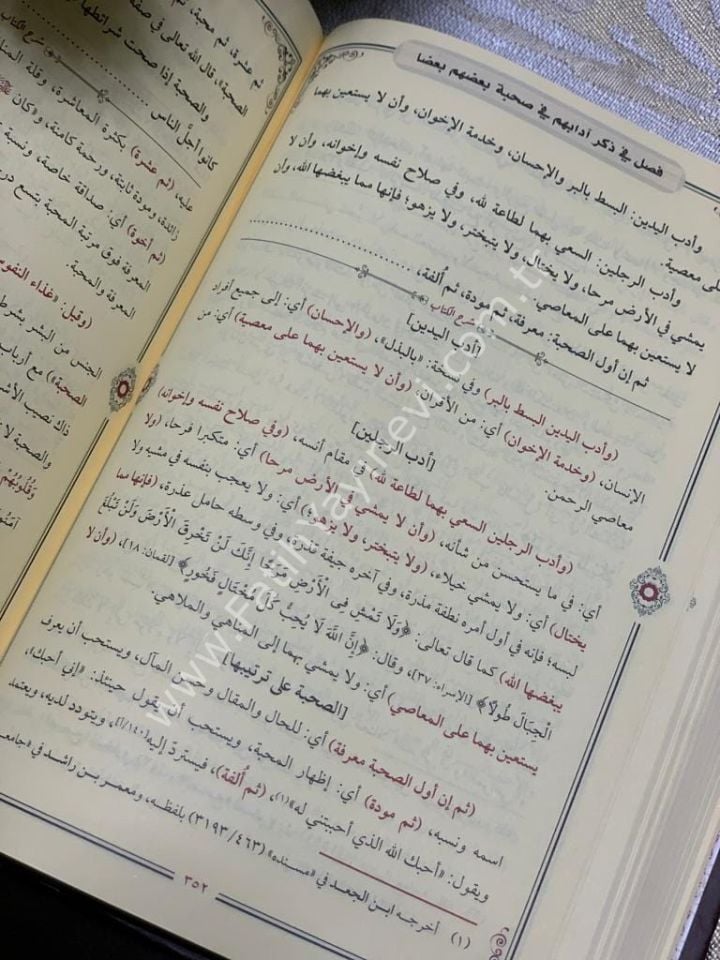 فصل في ذكر آدابهم في صحبة بعضهم بعضا
وأدب اليدين: البسط بالبر والإحسان، وخدمة الإخوان، وأن لا يستعين بهما
على معصية.
وأدب الرجلين: السعي بهما لطاعة لله، وفي صلاح نفسه وإخوانه، وأن لا
يمشي في الأرض مرحا، ولا يختال، ولا يتبختر، ولا يزهو؛ فإنها مما يبغضها الله، وأن
لا يستعين بهما على المعاصي.
ثم إن أول الصحبة: معرفة، ثم مودة، ثم أُلفة،
شرح الكتاب
[أدب اليدين]
(وأدب اليدين البسط بالبر) وفي نسخة: «بالبذل»، (والإحسان) أي: إلى جميع أفراد
الإنسان، (وخدمة الإخوان) أي: من الأقران، (وأن لا يستعين بهما على معصية) أي: من
معاصي الرحمن.
[أدب الرجلين]
(وأدب الرجلين السعي بهما لطاعة لله) في مقام أنسه، (وفي صلاح نفسه وإخوانه)
أي: في ما يستحسن من شأنه، (وأن لا يمشي في الأرض مرحا) أي: متكبرا فرحا، (ولا
يختال) أي: ولا يمشي خيلاء، (ولا يتبختر، ولا يزهو) أي: ولا يعجب بنفسه في مشيه ولا
لبسه؛ فإنه في أول أمره نطفة مذرة، وفي آخره جيفة قذرة، وفي وسطه حامل عذرة، (فإنها مما
يبغضها الله) كما قال تعالى: ﴿وَلَا تَمْشِ فِى الْأَرْضِ مَرَحًا إِنَّكَ لَنْ تَخْرِقَ الْأَرْضَ وَلَنْ تَبْلُغَ
الْجِبَالَ طُولًا﴾ [الإسراء: ٣٧]، وقال: ﴿إِنَّ اللّٰهَ لَا يُحِبُّ كُلَّ مُخْتَالٍ فَخُورٍ﴾ [لقمان: ١٨]، (وأن لا
يستعين بهما على المعاصي) أي: ولا يمشي بهما إلى المناهي والملاهي.
[الصحبة على ترتيبها]
(ثم إن أول الصحبة معرفة) أي: للحال والمقال وحسن المآل، ويستحب أن يعرف
اسمه ونسبه، (ثم مودة) أي: إظهار المحبة، ويستحب أن يقول حينئذ: «إني أحبك»،
ويقول: «أحبك الله الذي أحببتني له»(١)، (ثم أُلفة)، فيسترد إليه[١٤٠/أ]، ويتودد لديه، ويعتمد
(١) أخرجه ابن الجعد في «مسنده» (٣١٩٣/٤٦٣) بلفظه، ومعمر بن راشد في «جامع
٣٥٢
ثم عشرة، ثم محبة،
الصحبة»، قال الله تعالى في صفة
والصحبة إذا صحت شرائطها
كانوا أجلّ الناس
شرح الكتاب
عليه، (ثم عشرة) بكثرة المعاشرة، وقلة
زائدة، ومودة ثابتة، ورحمة كامنة، و«كان
(ثم أخوة) أي: صداقة خاصة، ونسبة
المعرفة فوق مرتبة المحبة بتسع
المعرفة والمحبة.
(وقيل: «غذاء النفوس
الجنس من البشر بشرط
الصحبة») مع أرباب
ذاك نصيب
والصحبة لا
وَقُلُوبُهُمْ
www.FatihYayinevi.com.t